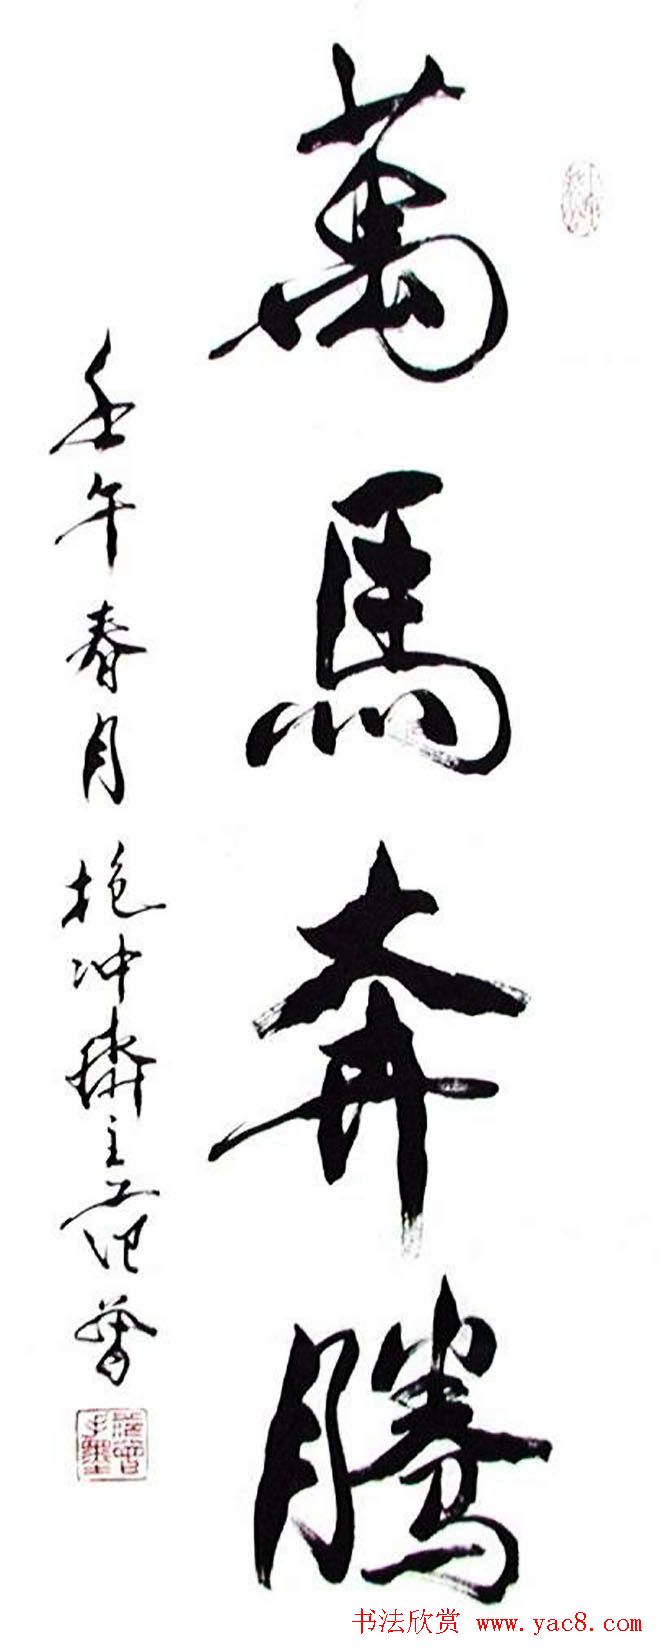 萬馬奔騰
壬午春月抱冲齋主江東范曾
書法欣賞 www.yac8.com